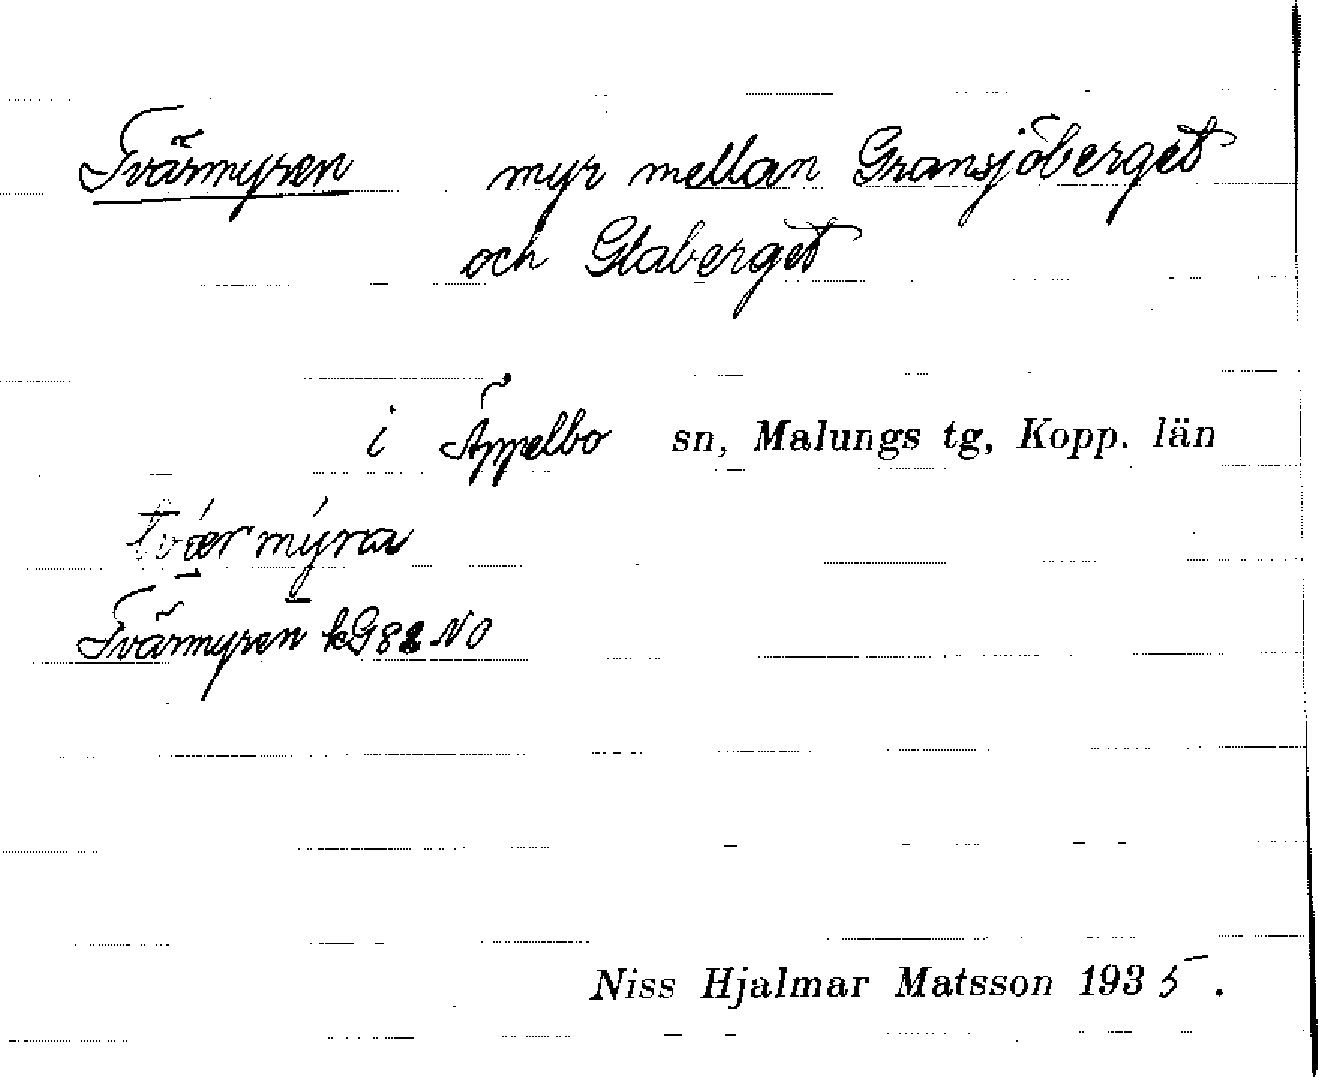 Tvärmyren myr mellan Gransjöberget
och Glaberget
i Äppelbo sn, Malungs tg, Kopp. län
tvǽr mýra
Tvärmyren kG82 NO
Niss Hjalmar Matsson 1935.